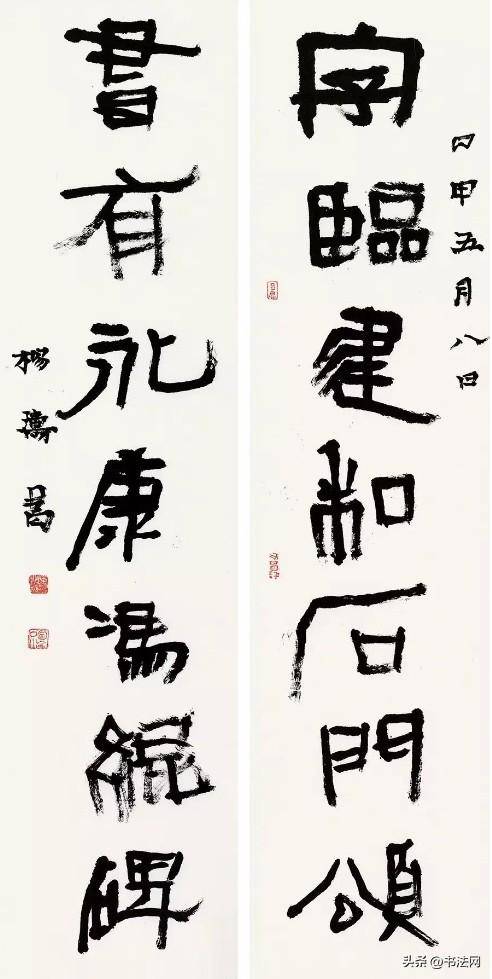 甲五月八日
字臨建和石門頌
書有永康馮緄碑
楊
头条 @书法网